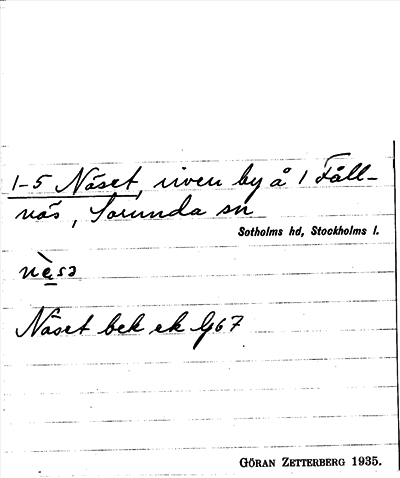 1-5 Näset, riven by å 1 Fåll-
näs, Sorunda sn
Sotholms hd, Stockholms l.
nèsə
Näset bek ek G67
GÖRAN ZETTERBERG 1935.